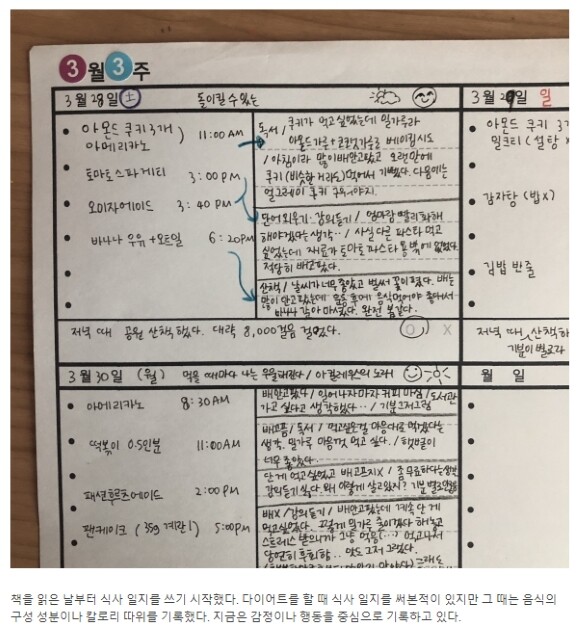 3월 3주
3월 28일 土 돌이킬 수 있는
아몬드 쿠키 3개
아메리카노
11:00 AM
토마토 스파게티 3:00 PM
오미자에이드 3:40 PM
바나나 우유 + 오트밀 6:20PM
독서/ 쿠키가 먹고싶었는데 밀가루라
아몬드가루+코코넛가루로 베이킹 시도
/ 아침이라 많이 배 안고팠고 오랜만에
쿠키(비슷한거라도) 먹어서 기뻤다. 다음에는
얼그레이 쿠키 구워야지.
단어 외우기. 강의듣기 / 엄마랑 빨리 화해
해야겠다는 생각.. / 사실 다른 파스타 먹고
싶었는데 재료가 토마토 파스타 뿐에 없었다.
적당히 배고팠다.
산책/ 날씨가 너무 좋았고 벌써 꽃이 폈다. 배는
많이 안고팠는데 운동 후에 음식 먹어야
바나나 갈아 마셨다. 완전 봄같다.
저녁 때 공원 산책했다. 대략 8,000걸음 걸었다. O X
3월 29일 일
아몬드 쿠키
밀크티 (설탕 x
감자탕 (밥X)
김밥 반줄
저녁 때, 산책하
기분이 별로라
3월 30일 (월) 먹을 때마다 나는 우울해진다 / 아킬레우스의 노래
아메리카노 8:30AM
떡볶이 0.5인분 11:00AM
패션후르츠에이드 2:00 PM
팬케이크 (35g 계란1) 5:00PM
배안고팠다 / 일어나자마자 커피 마심 / 도서관
가고 싶다고 생각했다... / 기분 그저그럼
배고픔/ 독서 / 먹고싶은걸 마음대로 먹겠다는
생각. 밀가루 마음껏 먹고 싶다. / 햇빛이
너무 좋았다.
단 게 먹고싶었고 배고프지X / 좀 무료하다는생각
강의듣기 싫다. 왜 이렇게 살고있지? 기분
배X /강의듣기 / 배안고팠는데 계속 단 게
먹고싶었다. 밀가루 해놓고
스트레스 받으니까 그냥 먹음(...) 먹고나서
당연히 후회함... 맛도 그저 그랬다.
월 일
책을 읽은 날부터 식사 일지를 쓰기 시작했다. 다이어트를 할 때 식사 일지를 써본적이 있지만 그 때는 음식의
구성 성분이나 칼로리 따위를 기록했다. 지금은 감정이나 행동을 중심으로 기록하고 있다.